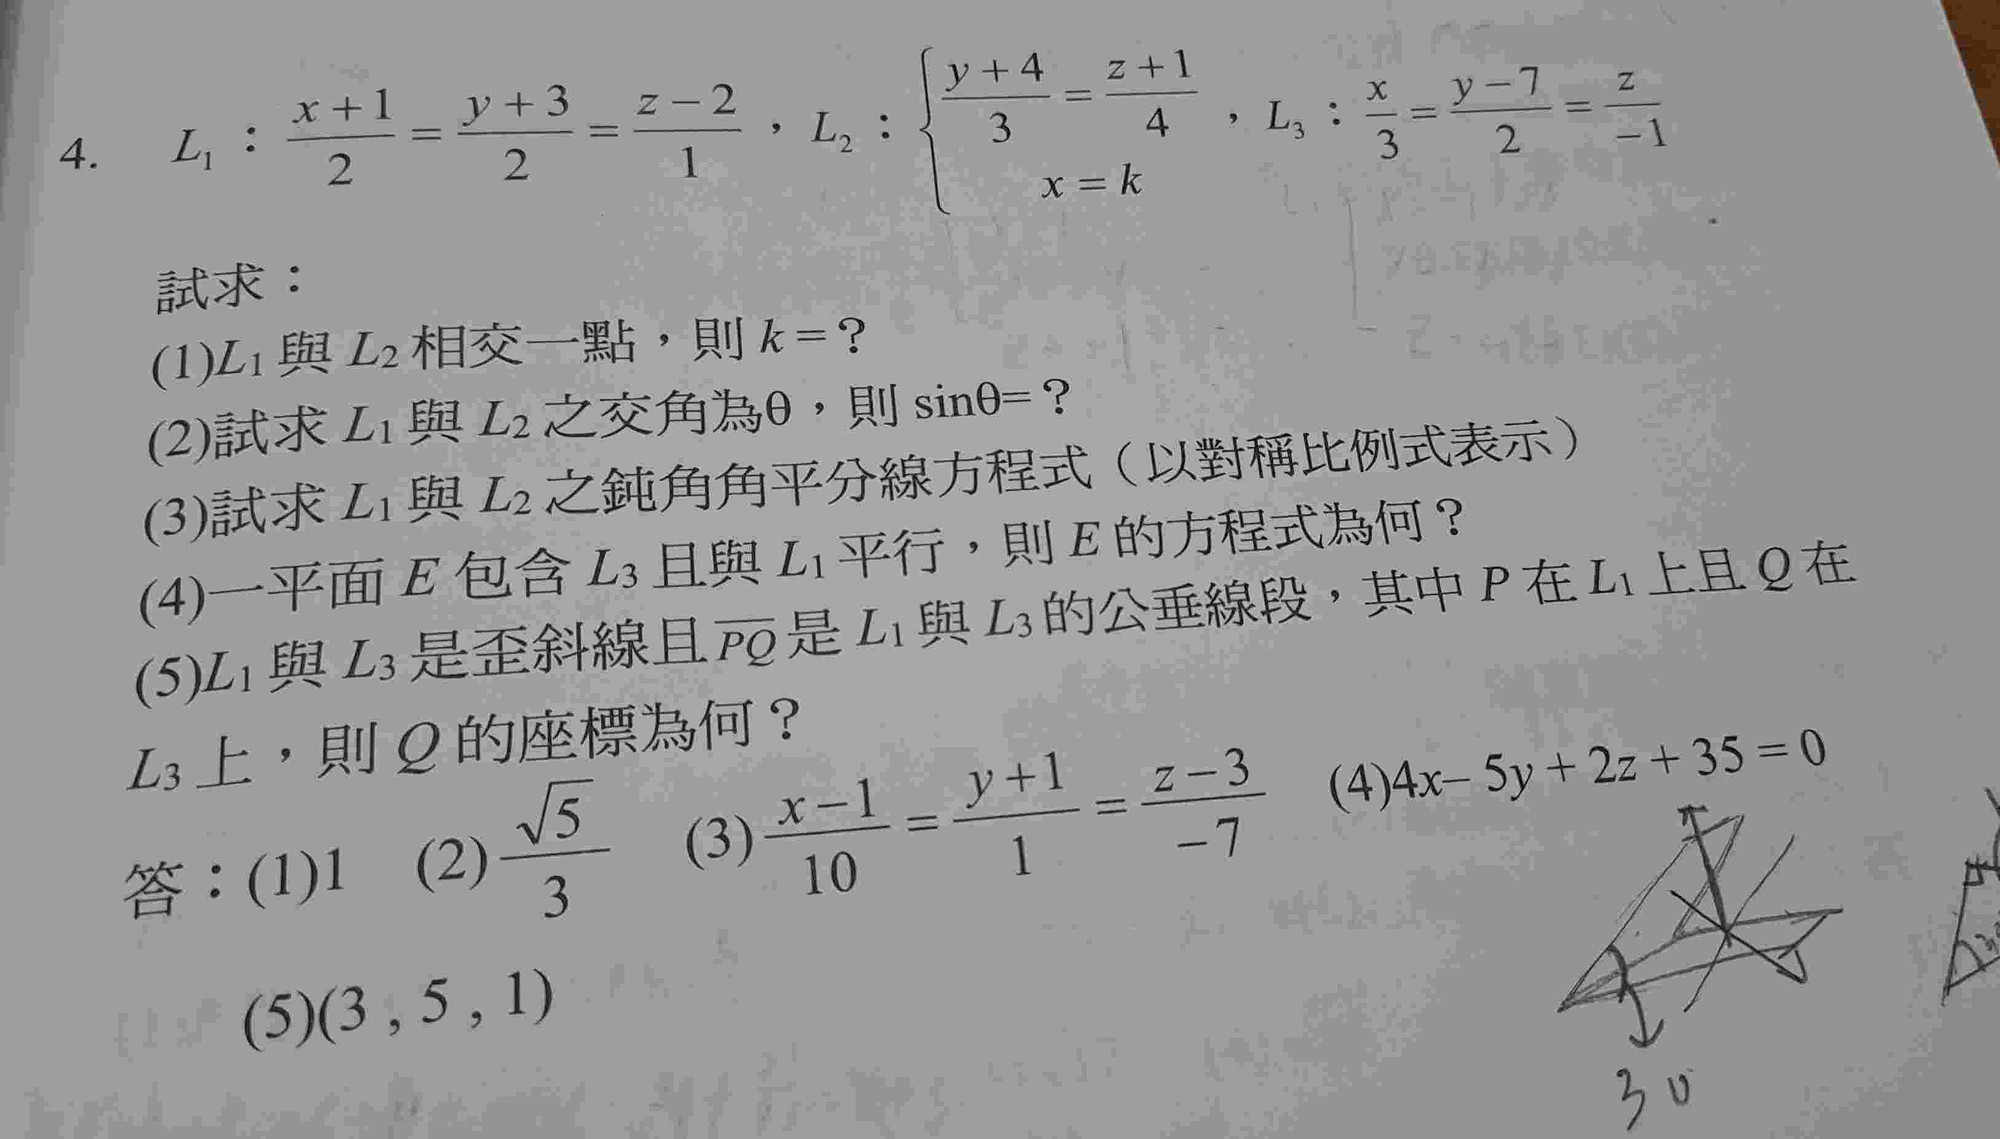 4. L₁：(x+1)/2 = (y+3)/2 = (z−2)/1，L₂：{(y+4)/3 = (z+1)/4, x = k，L₃：x/3 = (y−7)/2 = z/−1
試求：
(1)L₁與 L₂相交一點，則 k=？
(2)試求 L₁與 L₂之交角為θ，則 sinθ=？
(3)試求 L₁與 L₂之鈍角角平分線方程式（以對稱比例式表示）
(4)一平面 E 包含 L₃且與 L₁平行，則 E 的方程式為何？
(5)L₁與 L₃是歪斜線且P̅Q̅是 L₁與 L₃的公垂線段，其中 P 在 L₁上且 Q 在
L₃上，則 Q 的座標為何？
答：(1)1 (2)√5/3 (3)(x−1)/10 = (y+1)/1 = (z−3)/−7 (4)4x–5y+2z+35=0
(5)(3,5,1)